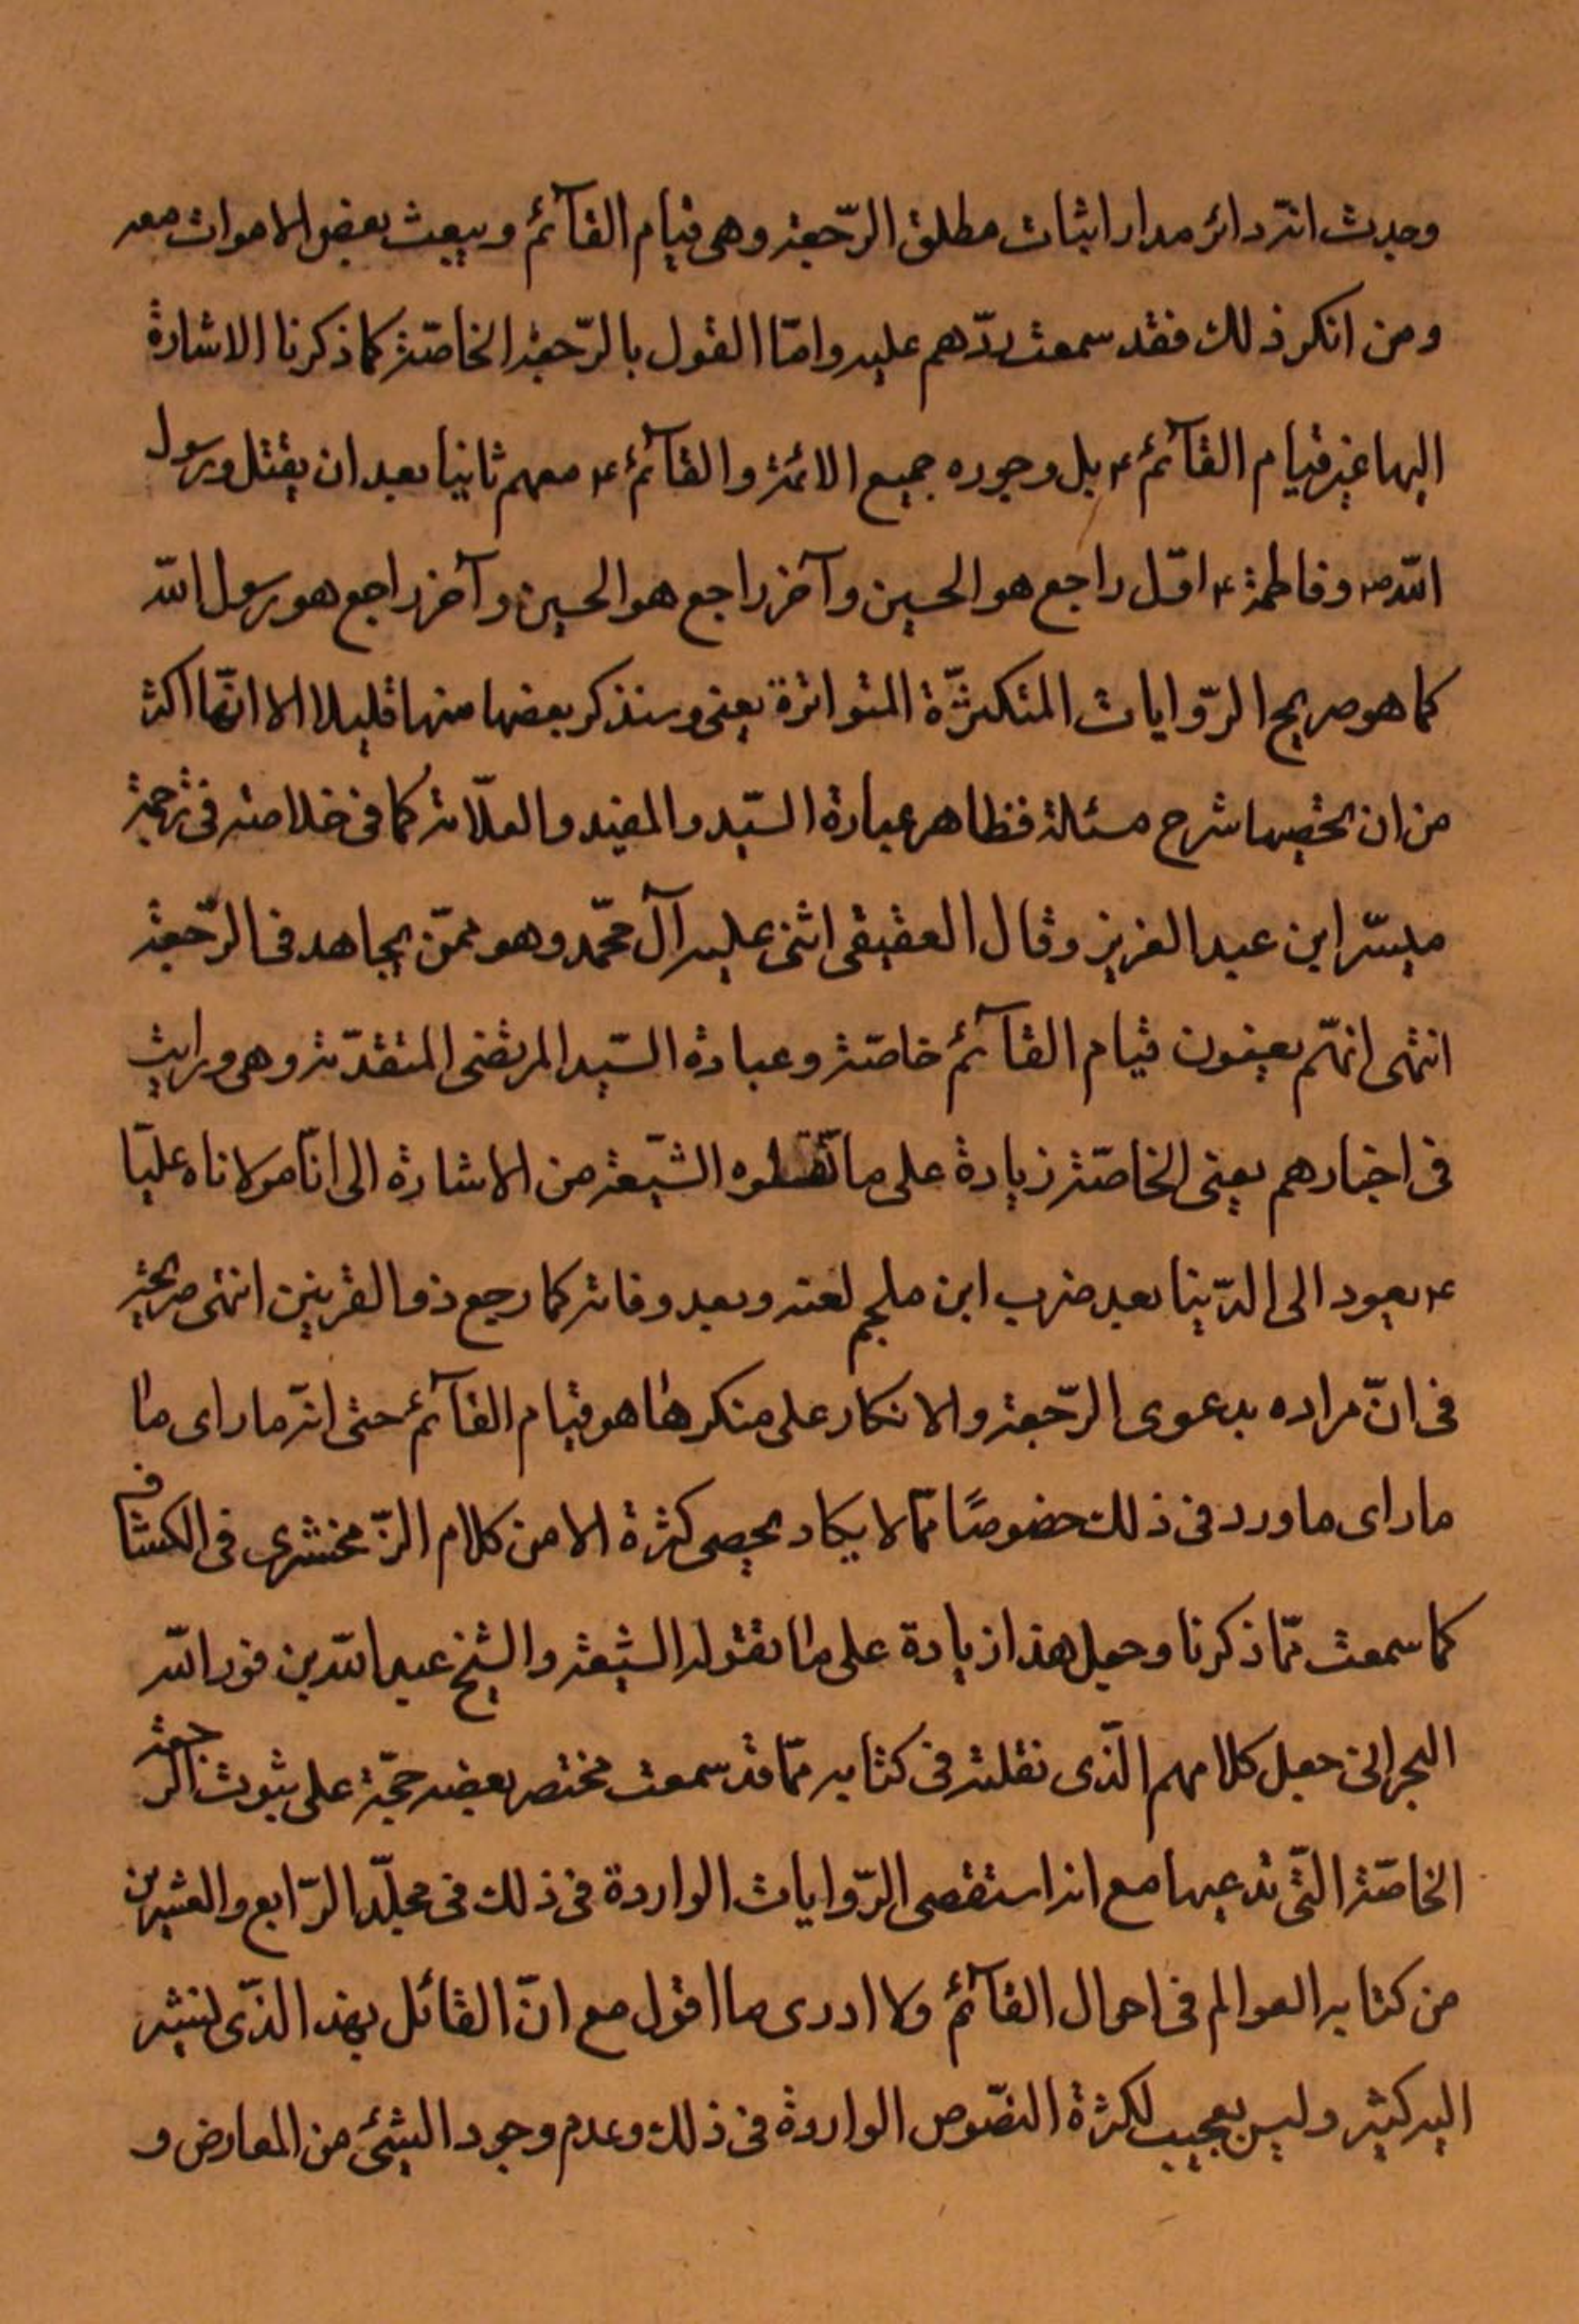 وجدت انّه دائر مدار اثبات مطلق الرّجعة وهی قیام القآئم و یبعث بعض الاموات معه
ومن انکر ذلك فقد سمعت ردّهم علیه وامّا القول بالرّجعة الخاصّة کما ذکرنا الاشارة
الیها غیر قیام القآئم ء بل وجوده جمیع الائمة والقآئم ء معهم ثانیا بعد ان یقتل ورسول
اللّه ص وفاطمة ء اوّل راجع هو الحسین وآخر راجع هو الحسین وآخر راجع هو رسول اللّه
کما هو صریح الرّوایات المتکثّرة المتواترة یعنی وسنذکر بعضها منها قلیلا الا انّها اکثر
من ان یحصیها شرح مسئلة فظاهر عبارة السّید والمفید والعلّامة کما فی خلاصته فی ترجمة
میسّر ابن عبد العزیز وقال العقیقی اثنی علیه آل محمّد وهو ممّن یجاهد فی الرّجعة
انتهی انهّم یعنون قیام القآئم خاصّة وعبارة السّید المرتضی المتقدّمة وهی ورایت
فی اخبارهم یعنی الخاصّة زیادة علی ما الشّیعة من الاشارة الی انّ مولاناه علیّا
ء یعود الی الدّنیا بعد ضرب ابن ملجم لعنه وبعد وفاته کما رجع ذو القرنین انتهی صریحة
فی انّ مراده بدعوی الرّجعة والانکار علی منکرها هو قیام القآئم حتی انّه ما رای ما
ما رای ما ورد فی ذلك خصوصًا ممّا لا یکاد یحصی کثرة الا من کلام الزّمخشری فی الکشاف
کما سمعت ممّا ذکرنا وجعل هذا زیادة علی ما تقوله الشیعة والشیخ عبد اللّه بن نور اللّه
البحرانی جعل کلامهم الّذی نقلته فی کتابه ممّا قد سمعت مختصر بعضه حجّة علی ثبوت الرجعة
الخاصّة الّتی ندعیها مع انه استقصی الرّوایات الواردة فی ذلك فی مجلّد الرّابع والعشرین
من کتابه العوالم فی احوال القآئم ولا ادری ما اقول مع انّ القائل بهذا الذّی لنشر
الیه کثیر ولیس بعجیب لکثرة النصّوص الواردة فی ذلك وعدم وجود الشئ من المعارض و